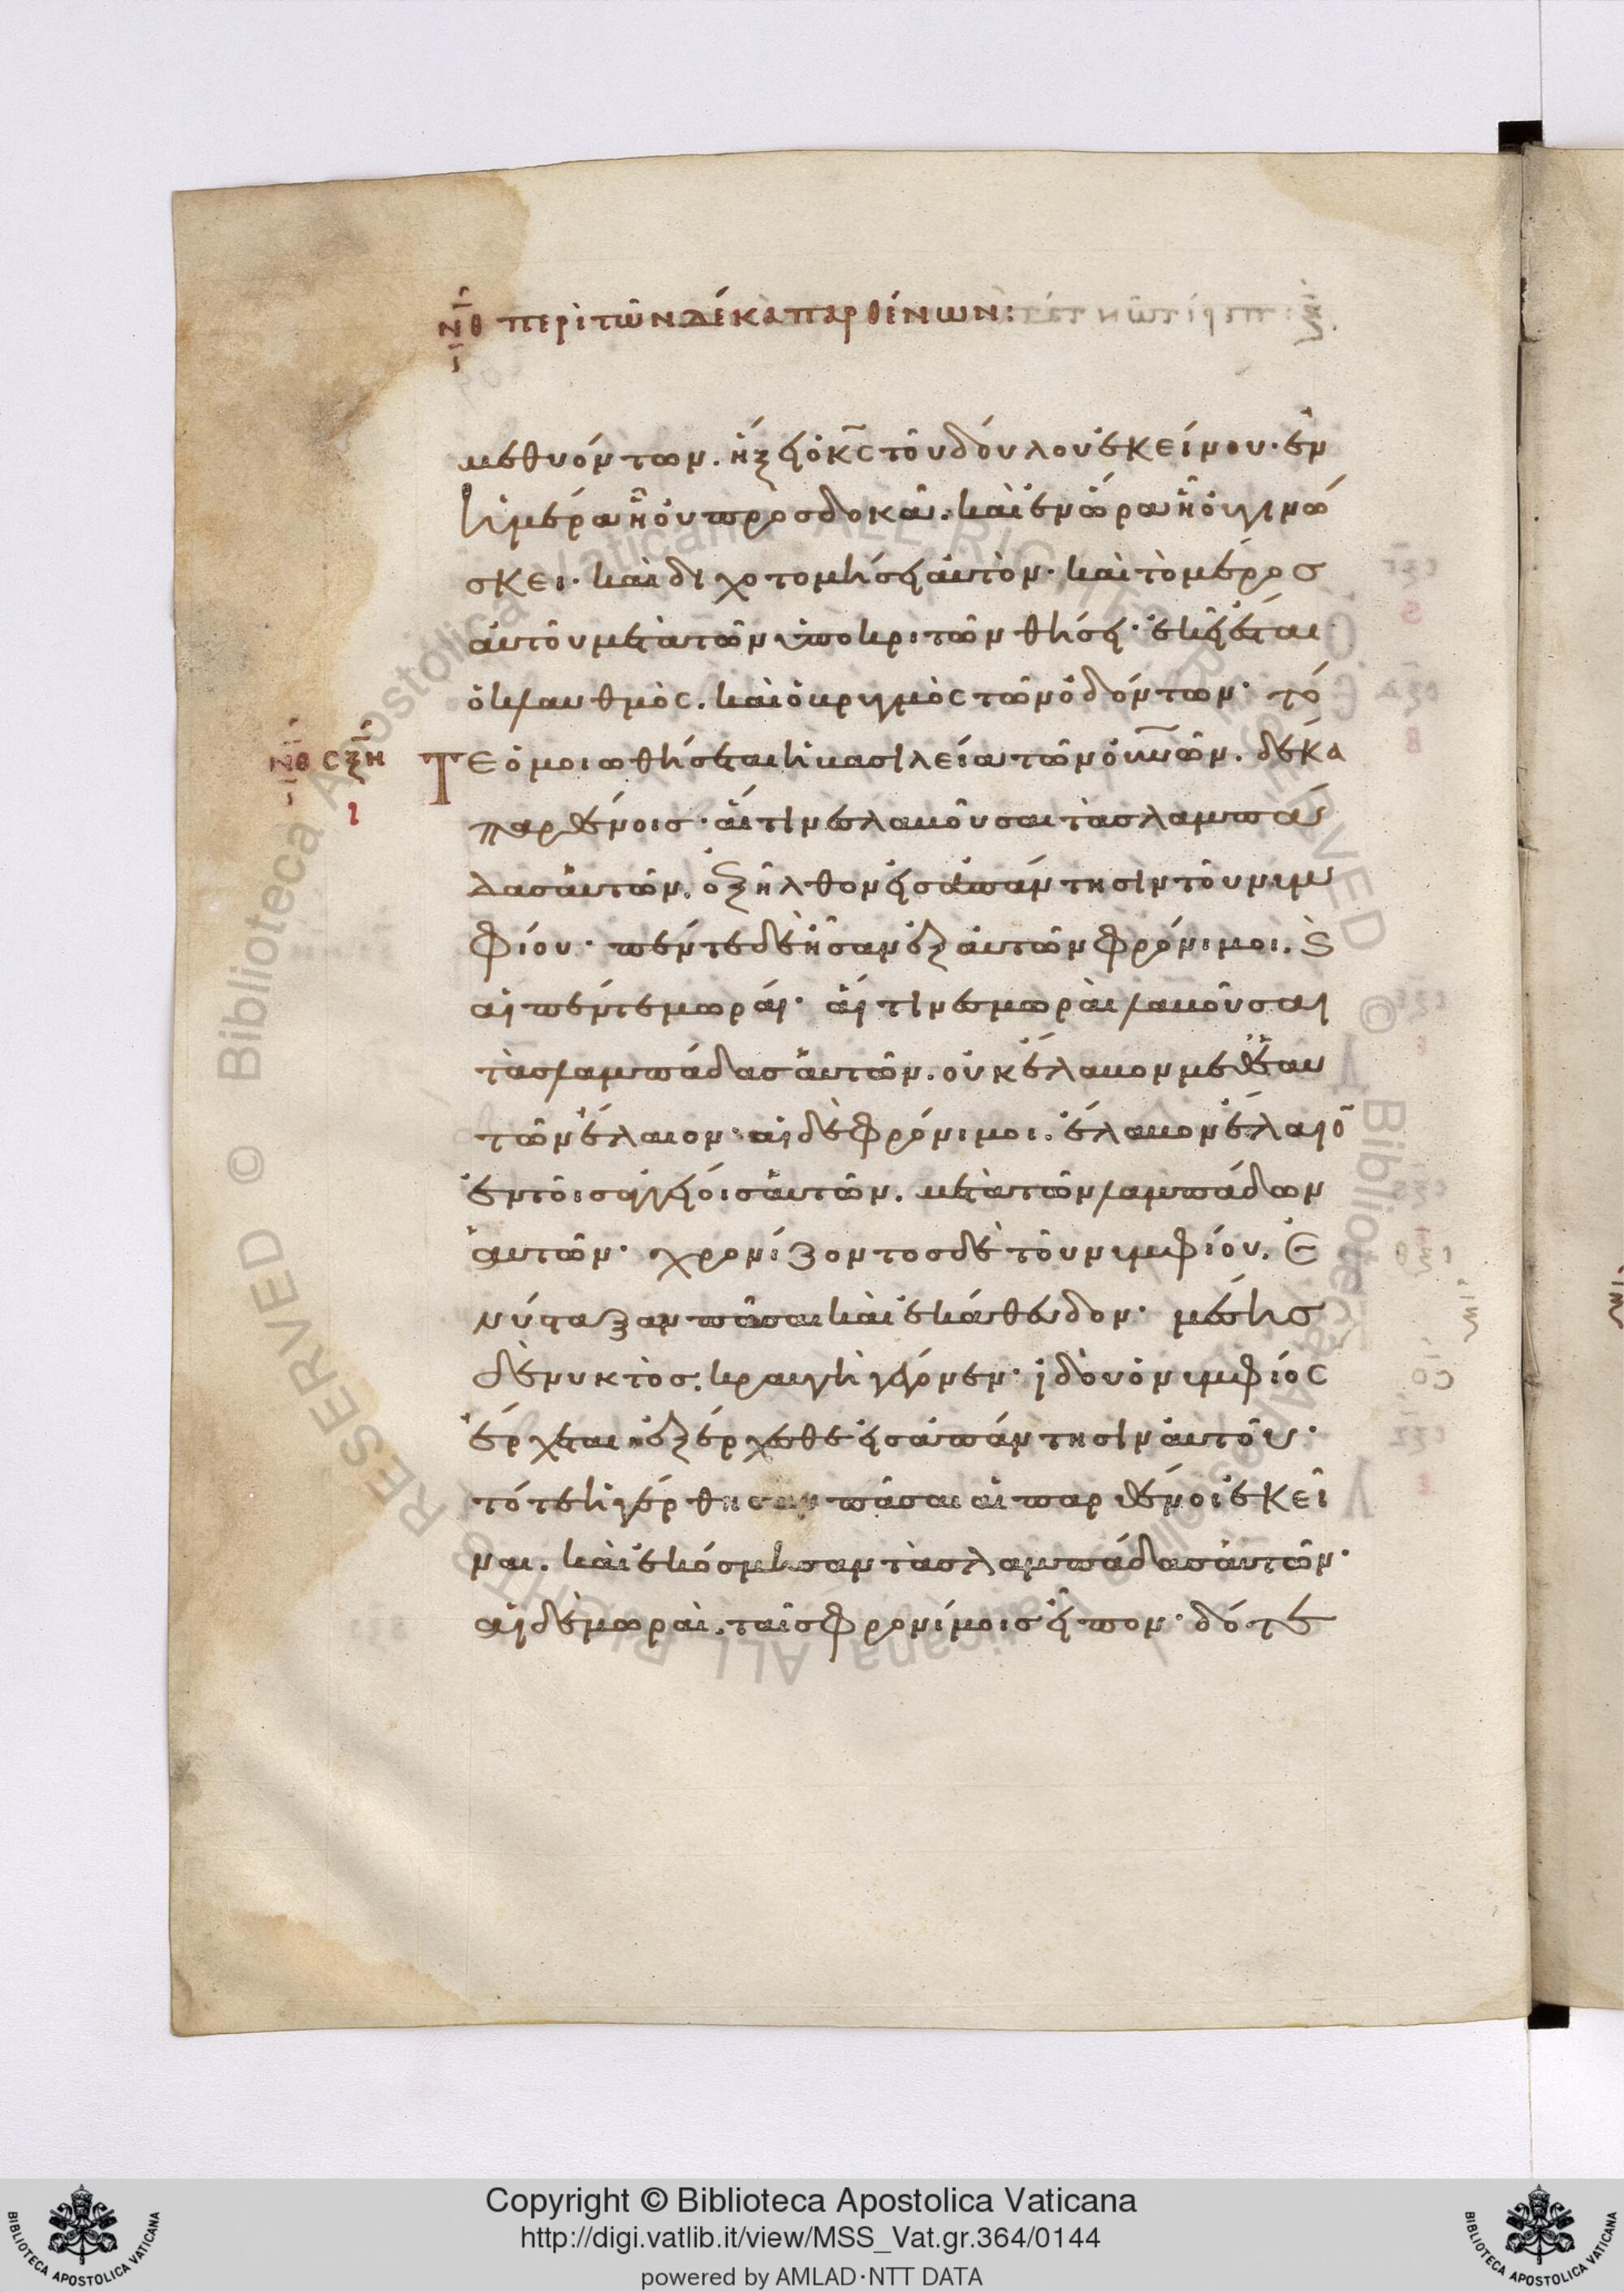 νθ περὶ τῶν δέκα παρθένων:
μεθυόντων. ἥξει ὁ κ̅ς̅ τοῦ δούλου ἐκείνου· ἐν
ἡμέρα ἧ οὐ προσδοκᾶ. καὶ ἐν ὥρα ἧ οὐ γινώ
σκει· καὶ διχοτομήσει αὐτόν· καὶ τὸ μέρος
αὐτοῦ μετὰ τῶν ὑποκριτῶν θήσει· ἐκεῖ ἔσται
ὁ κλαυθμὸς. καὶ ὁ βρυγμὸς τῶν ὀδόντων· τό
νθ σξη ΤΕ ὁμοιωθήσεται ἡ βασιλεία τῶν οὐνῶν. δέκα
ι
παρθένοις· αἵτινες λαβοῦσαι τὰς λαμπάδ
δας αὐτῶν. ἐξῆλθον εἰς ἀπάντησιν τοῦ νυμ
φίου· πέντε δὲ ἦσαν ἐξ αὐτῶν φρόνιμοι. Ϛ
αἱ πέντε μωραί· αἵτινες μωραὶ λαβοῦσαι
τὰς λαμπάδας αὐτῶν. οὐκ ἔλαβον μεθ' ἑαυ
τῶν ἔλαιον· αἱ δὲ φρόνιμοι. ἔλαβον ἔλαιο̅
ἐν τοῖς ἀγγείοις αὐτῶν. μετὰ τῶν λαμπάδων
αὐτῶν· χρονίζοντος δὲ τοῦ νυμφίου. Ἐ
νύσταξαν πᾶσαι καὶ ἐκάθευδον· μέσης
δὲ νυκτὸς. κραυγὴ γέγονεν· ἰδοὺ ὁ νυμφίος
ἔρχεται ἐξέρχεσθε εἰς ἀπάντησιν αὐτοῦ·
τότε ἠγέρθησαν πᾶσαι αἱ παρθένοι ἐκεῖ
ναι. καὶ ἐκόσμησαν τὰς λαμπάδας αὐτῶν·
αἱ δὲ μωραὶ. ταῖς φρονίμοις εἶπον· δότε
Copyright © Biblioteca Apostolica Vaticana
http://digi.vatlib.it/view/MSS_Vat.gr.364/0144
powered by AMLAD·NTT DATA